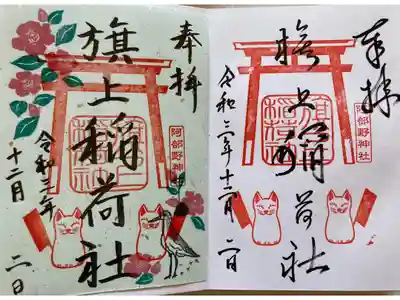 奉拝
阿部野神社
旗上稲荷社
令和二年十二月二日
奉拝
阿部野神社
旗上稲荷社
令和二年
十二月 二日